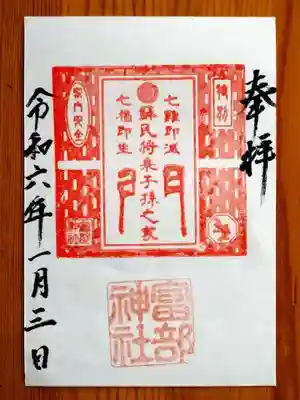 奉拝
七難即滅
蘇民将来子孫之家門
七福即生
家内安全
富部
神社
令和六年一月三日